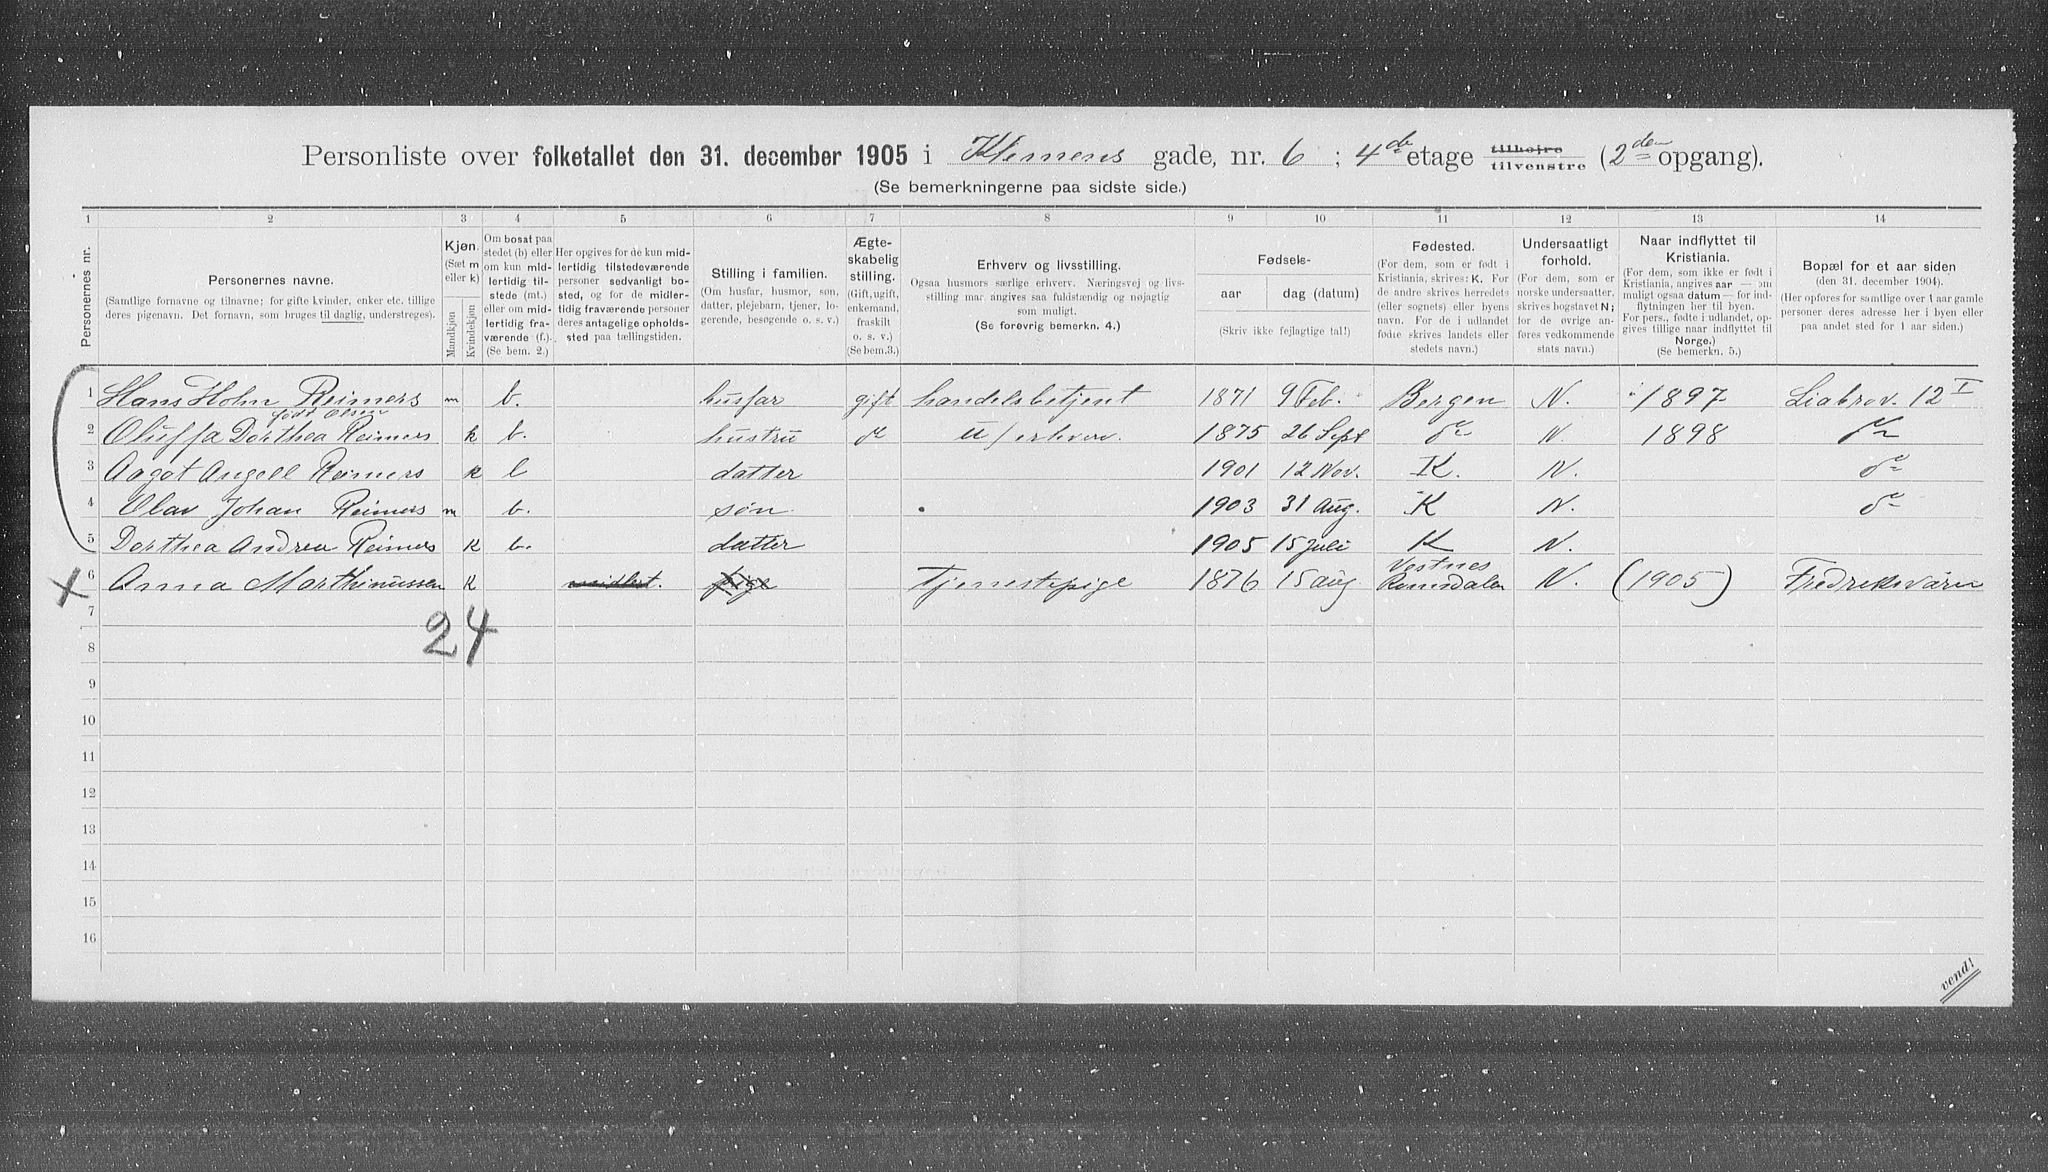 Personliste over folketallet den 31. december 1905 i Klemens gade, nr. 6 ; 4de etage tilhøire tilvenstre (2den opgang).
(Se bemerkningerne paa sidste side.)
1 2 3 4 5 6 7 8 9 10 11 12 13 14
Personernes nr.
Personernes navne.
(Samtlige fornavne og tilnavne; for gifte kvinder, enker etc. tillige deres pigenavn. Det fornavn, som bruges til daglig, understreges).
Kjøn.
(Sæt m eller k)
Mandkjøn
Kvindekjøn
Om bosat paa stedet (b) eller om kun midlertidig tilstede (mt.) eller om midlertidig fraværende (f.). (Se bem. 2.)
Her opgives for de kun midlertidig tilstedeværende personer sedvanligt bosted, og for de midlertidig fraværende personer deres antagelige opholdssted paa tællingstiden.
Stilling i familien.
(Om husfar, husmor, søn, datter, plejebarn, tjener, logerende, besøgende o. s. v.)
Ægteskabelig stilling.
(Gift, ugift, enkemand, fraskilt o. s. v.) (Se bem. 3.)
Erhverv og livsstilling.
Ogsaa husmors særlige erhverv. Næringsvej og livsstilling maa angives saa fuldstændig og nøjagtig som muligt.
(Se forøvrig bemerkn. 4.)
Fødsels-
aar
dag (datum)
(Skriv ikke fejlagtige tal!)
Fødested.
(For dem, som er født i Kristiania, skrives: K. For de andre skrives herredets (eller sognets) eller byens navn. For de i udlandet fødte skrives landets eller stedets navn.)
Undersaatligt forhold.
(For dem, som er norske undersaatter, skrives bogstavet N; for de øvrige anføres vedkommende stats navn.)
Naar indflyttet til Kristiania.
(For dem, som ikke er født i Kristiania, angives aar — om muligt ogsaa datum — for indflytningen her til byen. For pers., fødte i udlandet, opgives tillige naar indflyttet til Norge.)
(Se bemerkn. 5.)
Bopæl for et aar siden
(den 31. december 1904).
(Her opføres for samtlige over 1 aar gamle personer deres adresse her i byen eller paa andet sted for 1 aar siden.)
1 Hans Hohn Reimers m b. husfar gift handelsbetjent 1871 9 Feb. Bergen N. 1897 Liabrov. 12 I
født Olsen
2 Oluffa Dorthea Reimers k b. hustru do u/erhverv. 1875 26 Sept do N. 1898 do
3 Aagot Angell Reimers k b datter 1901 12 Nov. K. N. do
4 Olav Johan Reimers m b. søn 1903 31 Aug. K N. do
5 Dorthea Andrea Reimers k b. datter 1905 15 Juli K N.
6 Anna Marthinussen k midlert. pige Tjenestepige 1876 15 aug. Vestnes Romsdalen N. (1905) Fredriksværn
24
7
8
9
10
11
12
13
14
15
16
vend!